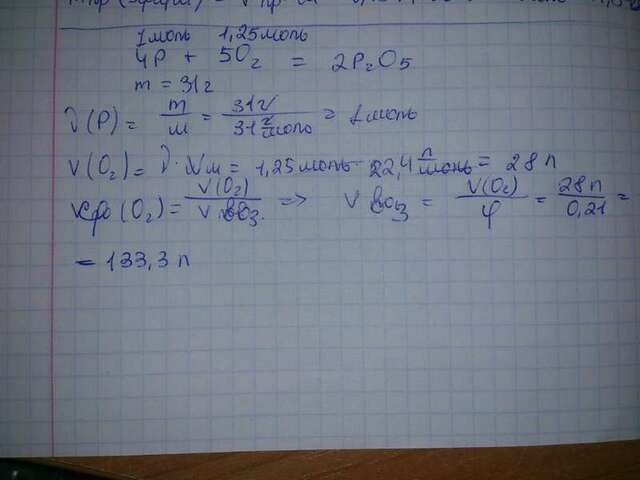 1моль 1,25моль
4P + 5O₂ = 2P₂O₅
m = 31г
ν(P) = m/м = 31г/31 г/моль = 1моль
V(O₂) = ν · Vм = 1,25моль · 22,4 л/моль = 28 л
φ(O₂) = V(O₂)/V воз. => V воз = V(O₂)/φ = 28л/0,21 =
= 133,3 л